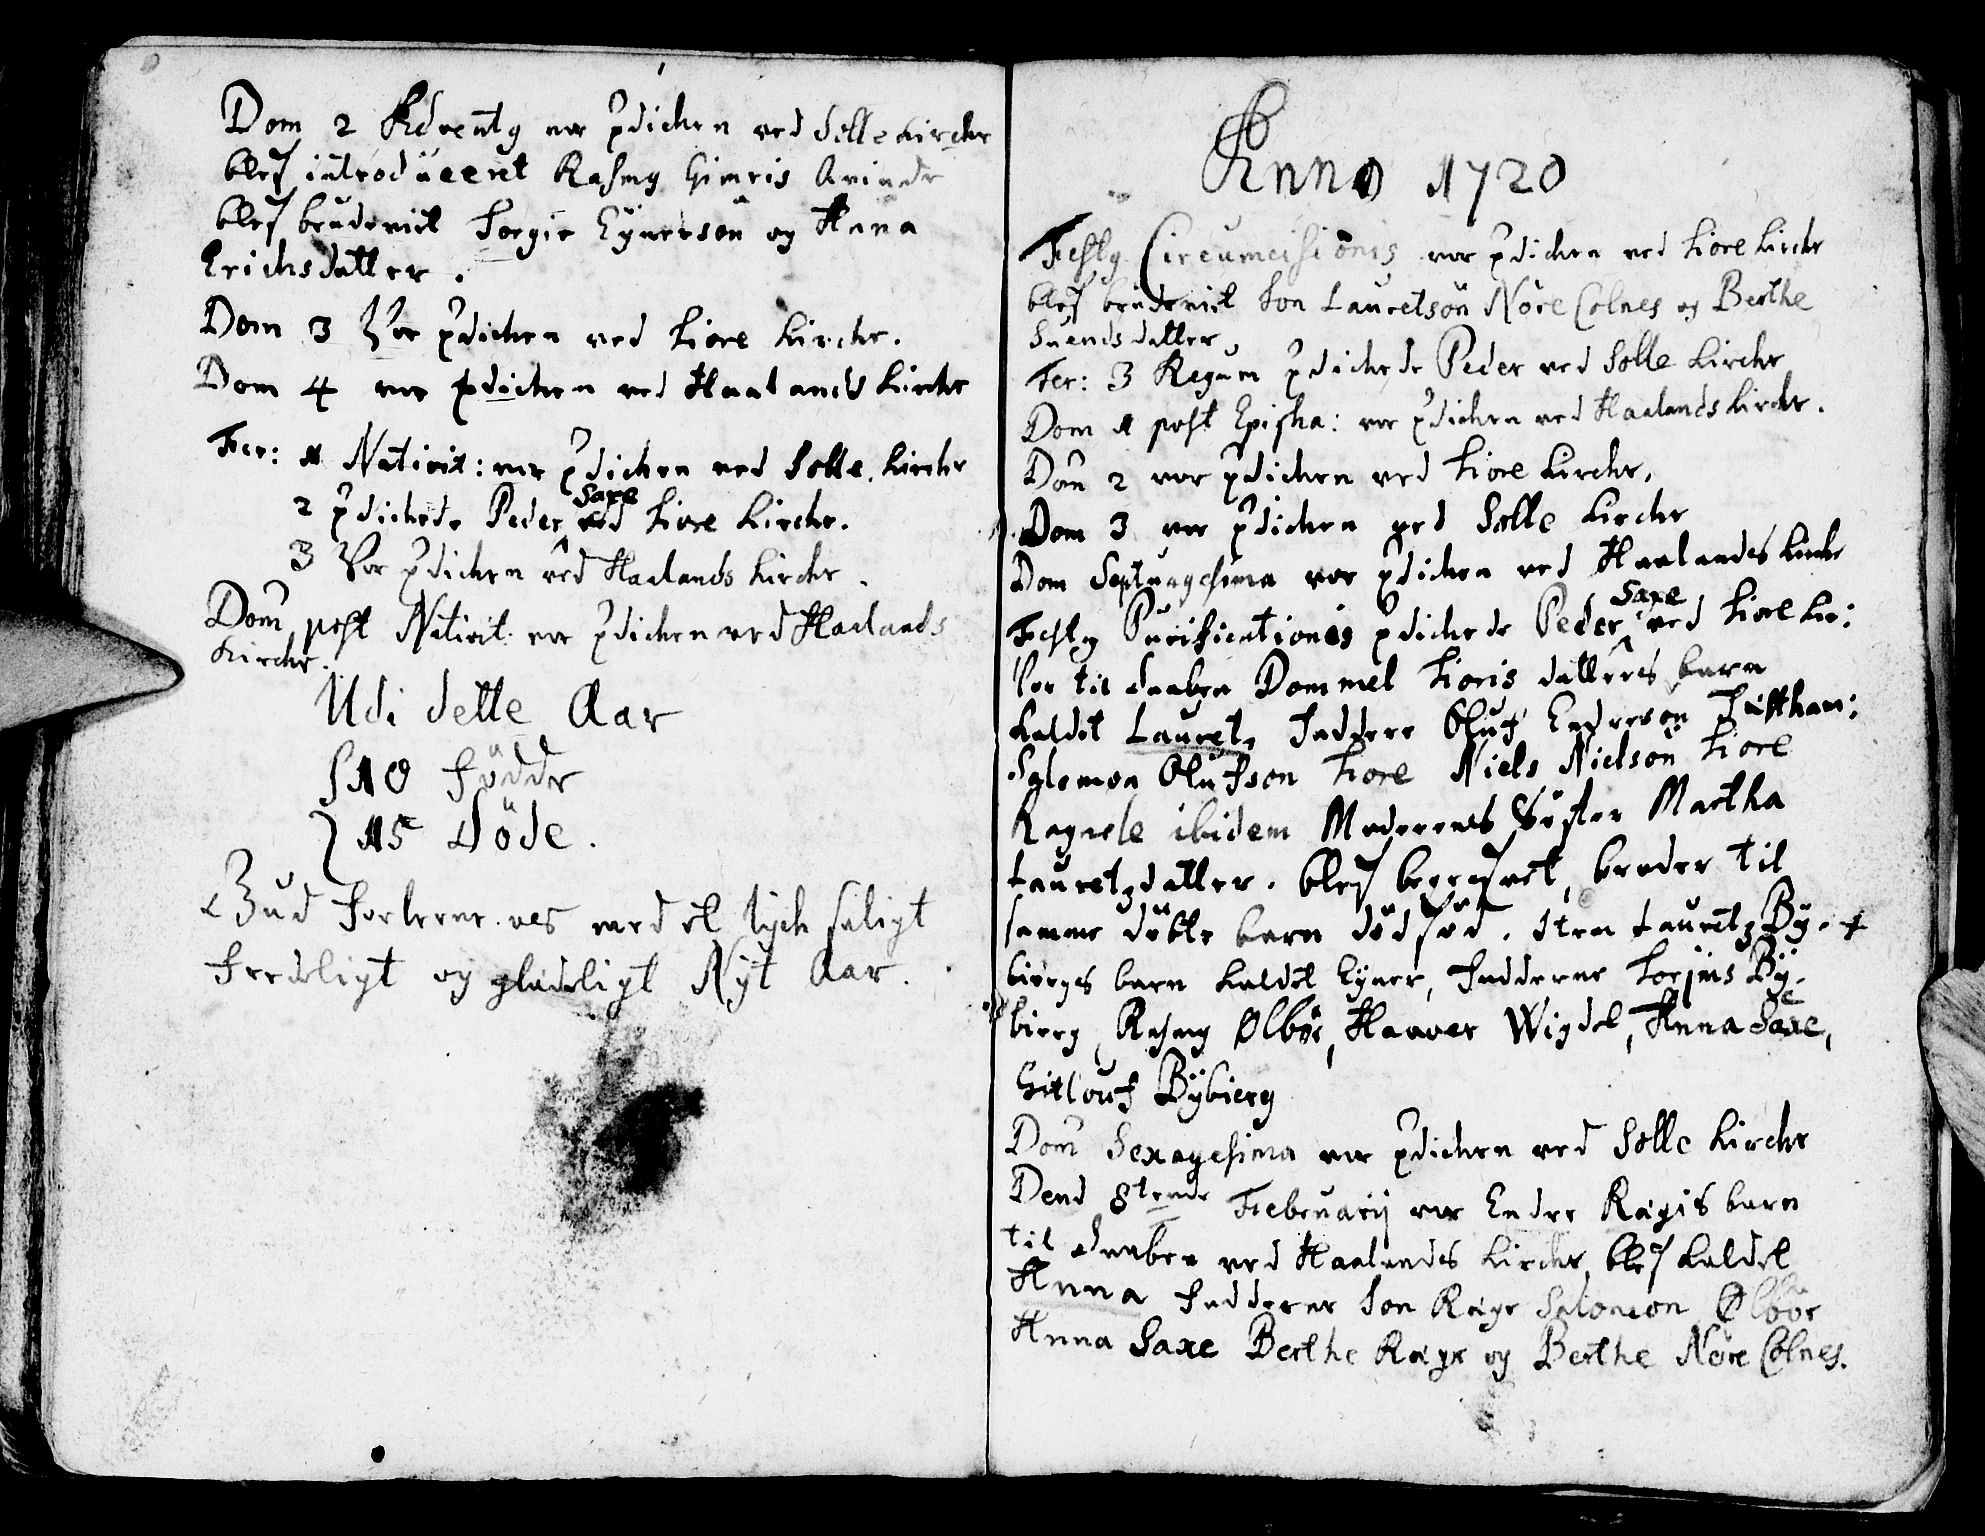 Dom 2 Adventg var pdichen ved Solle Kirche
blef introduceret Rasmg Gimris Qvinde
blef trudovict Torgir Eÿnersön og Anna
Erichsdatter.
Dom 3 Var pdichen ved Tiore Kirche.
Dom 4 var pdichen ved Haalands Kirche
Fer: 1 Nativit: var pdichen ved Solle Kirche
2 pdichede Peder Saxe ved Tiore Kirche.
3 Var pdichen ved Haalands Kirche.
Dom post Nativit: var pdichen ved Haalands
Kirche.
Udi dette Aar
10 födde
15 döde.
Gud forleene oes med et lyck saligt
fredeligt og gladeligt Nyt Aar.
Anno 1720
Festg Circumcisionis var pdichen ved Tiore Kirche
blef trudovict Jon Lauretsön Nöre Colnes og Berthe
Suends datter,
Fer: 3 Regum pdichede Peder ved Solle Kirche
Dom 1 post Epipha: var pdichen ved Haalands Kirche.
Dom 2 var pdichen ved Tiore Kirche,
Dom 3 var pdichen ved Solle Kirche
Dom Septuagesima var pdichen ved Haalandes Kirche
Festg Purificationis pdichede Peder Saxe ved Tiore Kir:
Var til daaben Dommel Tioris datters barn
kaldet Lauret, Faddere Oluf Enderson
Salomon Olufson Tiore Niels Nielsön Tiore
Ragnele ibidem Moderens Söster Martha
Lauretzdatter. blef begrafvet, broder til
samme döbte barn dödföd. Item Lauretz By-
biergs barn kaldet Eÿner, Fadderne Torjins Bÿ-
bierg, Rasmg Ølbör, Haaver Wigdel, Anna Saxe,
Gitlouf Bÿbierg
Dom Sexagesima var pdichen ved Solle Kirche
Dend 8tende Februarij var Endre Rægis barn
til daaben ved Haalandes Kirche, blef kaldet
Anna Fadderne Jon Ræge Salomon Ølbör
Anna Saxe Berthe Ræge og Berthe Nöre Colnes.